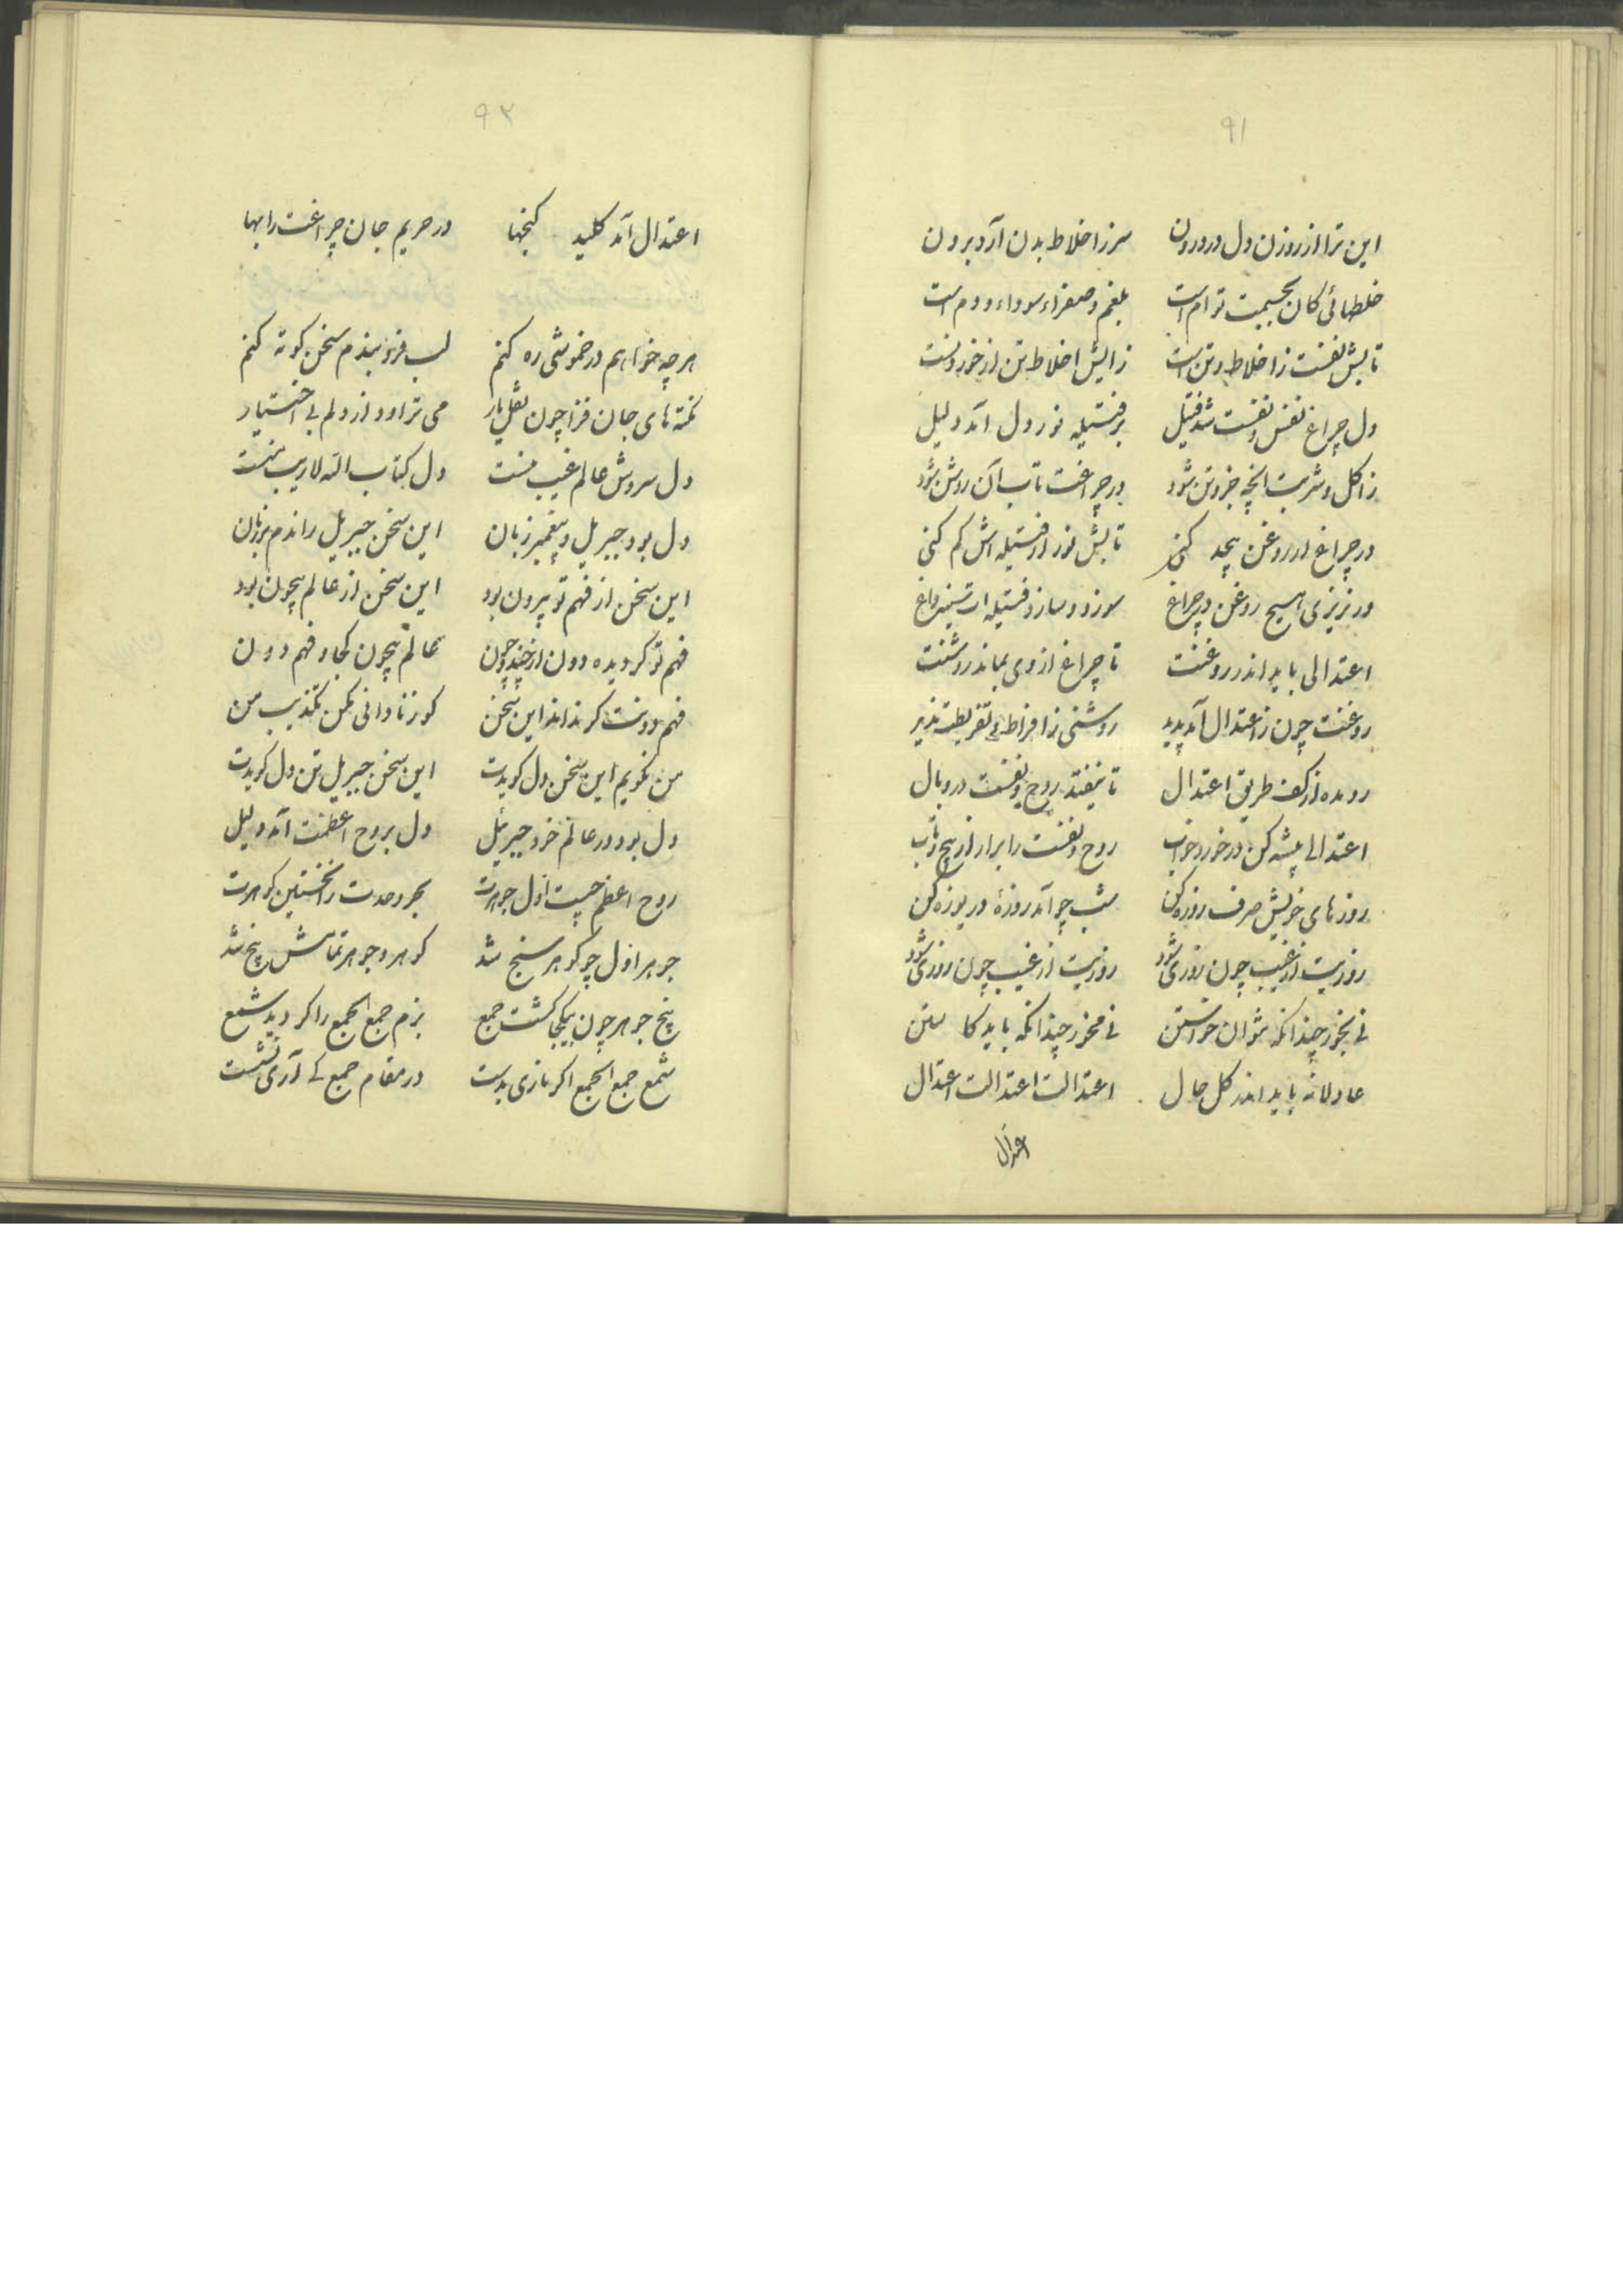 ۹۱
این ترا از روزن دل در درون سر ز اخلاط بدن آرد برون
خلطهائی کان بجسمت توام است بلغم و صفراء سوداء و دم است
تابش نفست ز اخلاط تن است زایش اخلاط تن از خوردنست
دل چراغ نفس و نفست شد فتیل بر فتیله نور دل آمد دلیل
ز اکل و شربت انچه جزو تن شود در چراغت تاب آن روشن شود
در چراغ ار روغن بیحد کنی تابش نور از فتیله اش کم کنی
ور نریزی هیچ روغن در چراغ سوزد و سازد فتیله ات
اعتدالی باید اندر روغنت تا چراغ از وی بماند روشنت
روغنت چون ز اعتدال آمد پدید روشنی ز افراط و تفریطت
رو مده از کف طریق اعتدال تا نیفتد روح و نفست در وبال
اعتدالی پیشه کن در خورد و خواب روح و نفست را برار از پیچ و تاب
روزهای خویش صرف روزه کن شب چو آمد روزهٔ دریوزه کن
روزیت از غیب چون روزی شود روزیت از غیب چون روزی شود
نی بخور چندانکه نتوان خواستن نی مخور چندانکه باید کاستن
عادلانه باید اندر کل حال اعتدالت اعتدالت اعتدال
اعتدال
۹۲
اعتدال آمد کلید کنجها در حریم جان چراغت را بها
هر چه خواهم در خموشی ره کنم لب فرو بندم سخن کوته کنم
نکته های جان فزا چون لعل یار می تراود از دلم بی اختیار
دل سروش عالم غیب منست دل کتاب الله لاریب منست
دل بود جبریل و پیغمبر زبان این سخن جبریل راندم بر زبان
این سخن از فهم تو بیرون بود این سخن از عالم بیچون بود
فهم تو کردیده دون از چند و چون عالم بیچون کجا و فهم دون
فهم دونت کر نداند این سخن کو ز نادانی مکن تکذیب من
من نکویم این سخن دل کویدت این سخن جبریل تن دل کویدت
دل بود در عالم خود جبرئیل دل بروح اعظمت آمد دلیل
روح اعظم چیست اول جوهرت بحر وحدت را نخستین کوهرت
جوهر اول چو کوهر سنج شد کوهر و جوهر تماش پنج شد
پنج جوهر چون بیکجا کشت جمع بزم جمع الجمع را کردید شمع
شمع جمع الجمع اکر نازی بدست در مقام جمع کی آری نشست